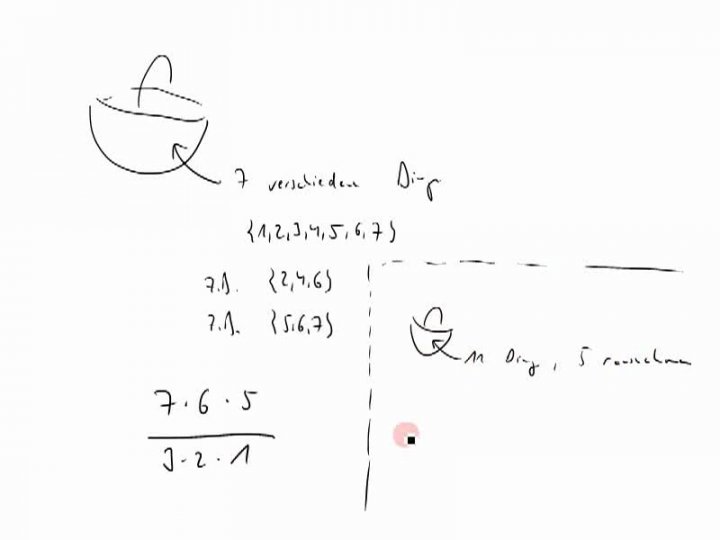 7 verschiedene Dinge
{1,2,3,4,5,6,7}
z.B. {2,4,6}
z.B. {5,6,7}
7·6·5
3·2·1
11 Dinge, 5 rausnehmen